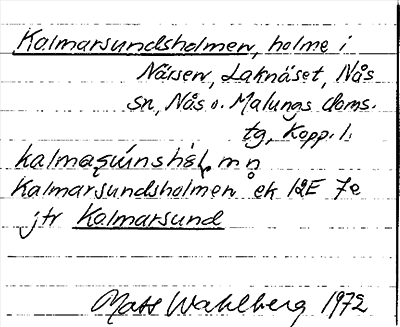 Kalmarsundsholmen, holme i
Närsen, Laknäset, Nås
sn, Nås o. Malungs doms.
tg, Kopp. l.
Kalmarsundsholmen ek 12E 7e
jfr Kalmarsund
Mats Wahlberg 1972